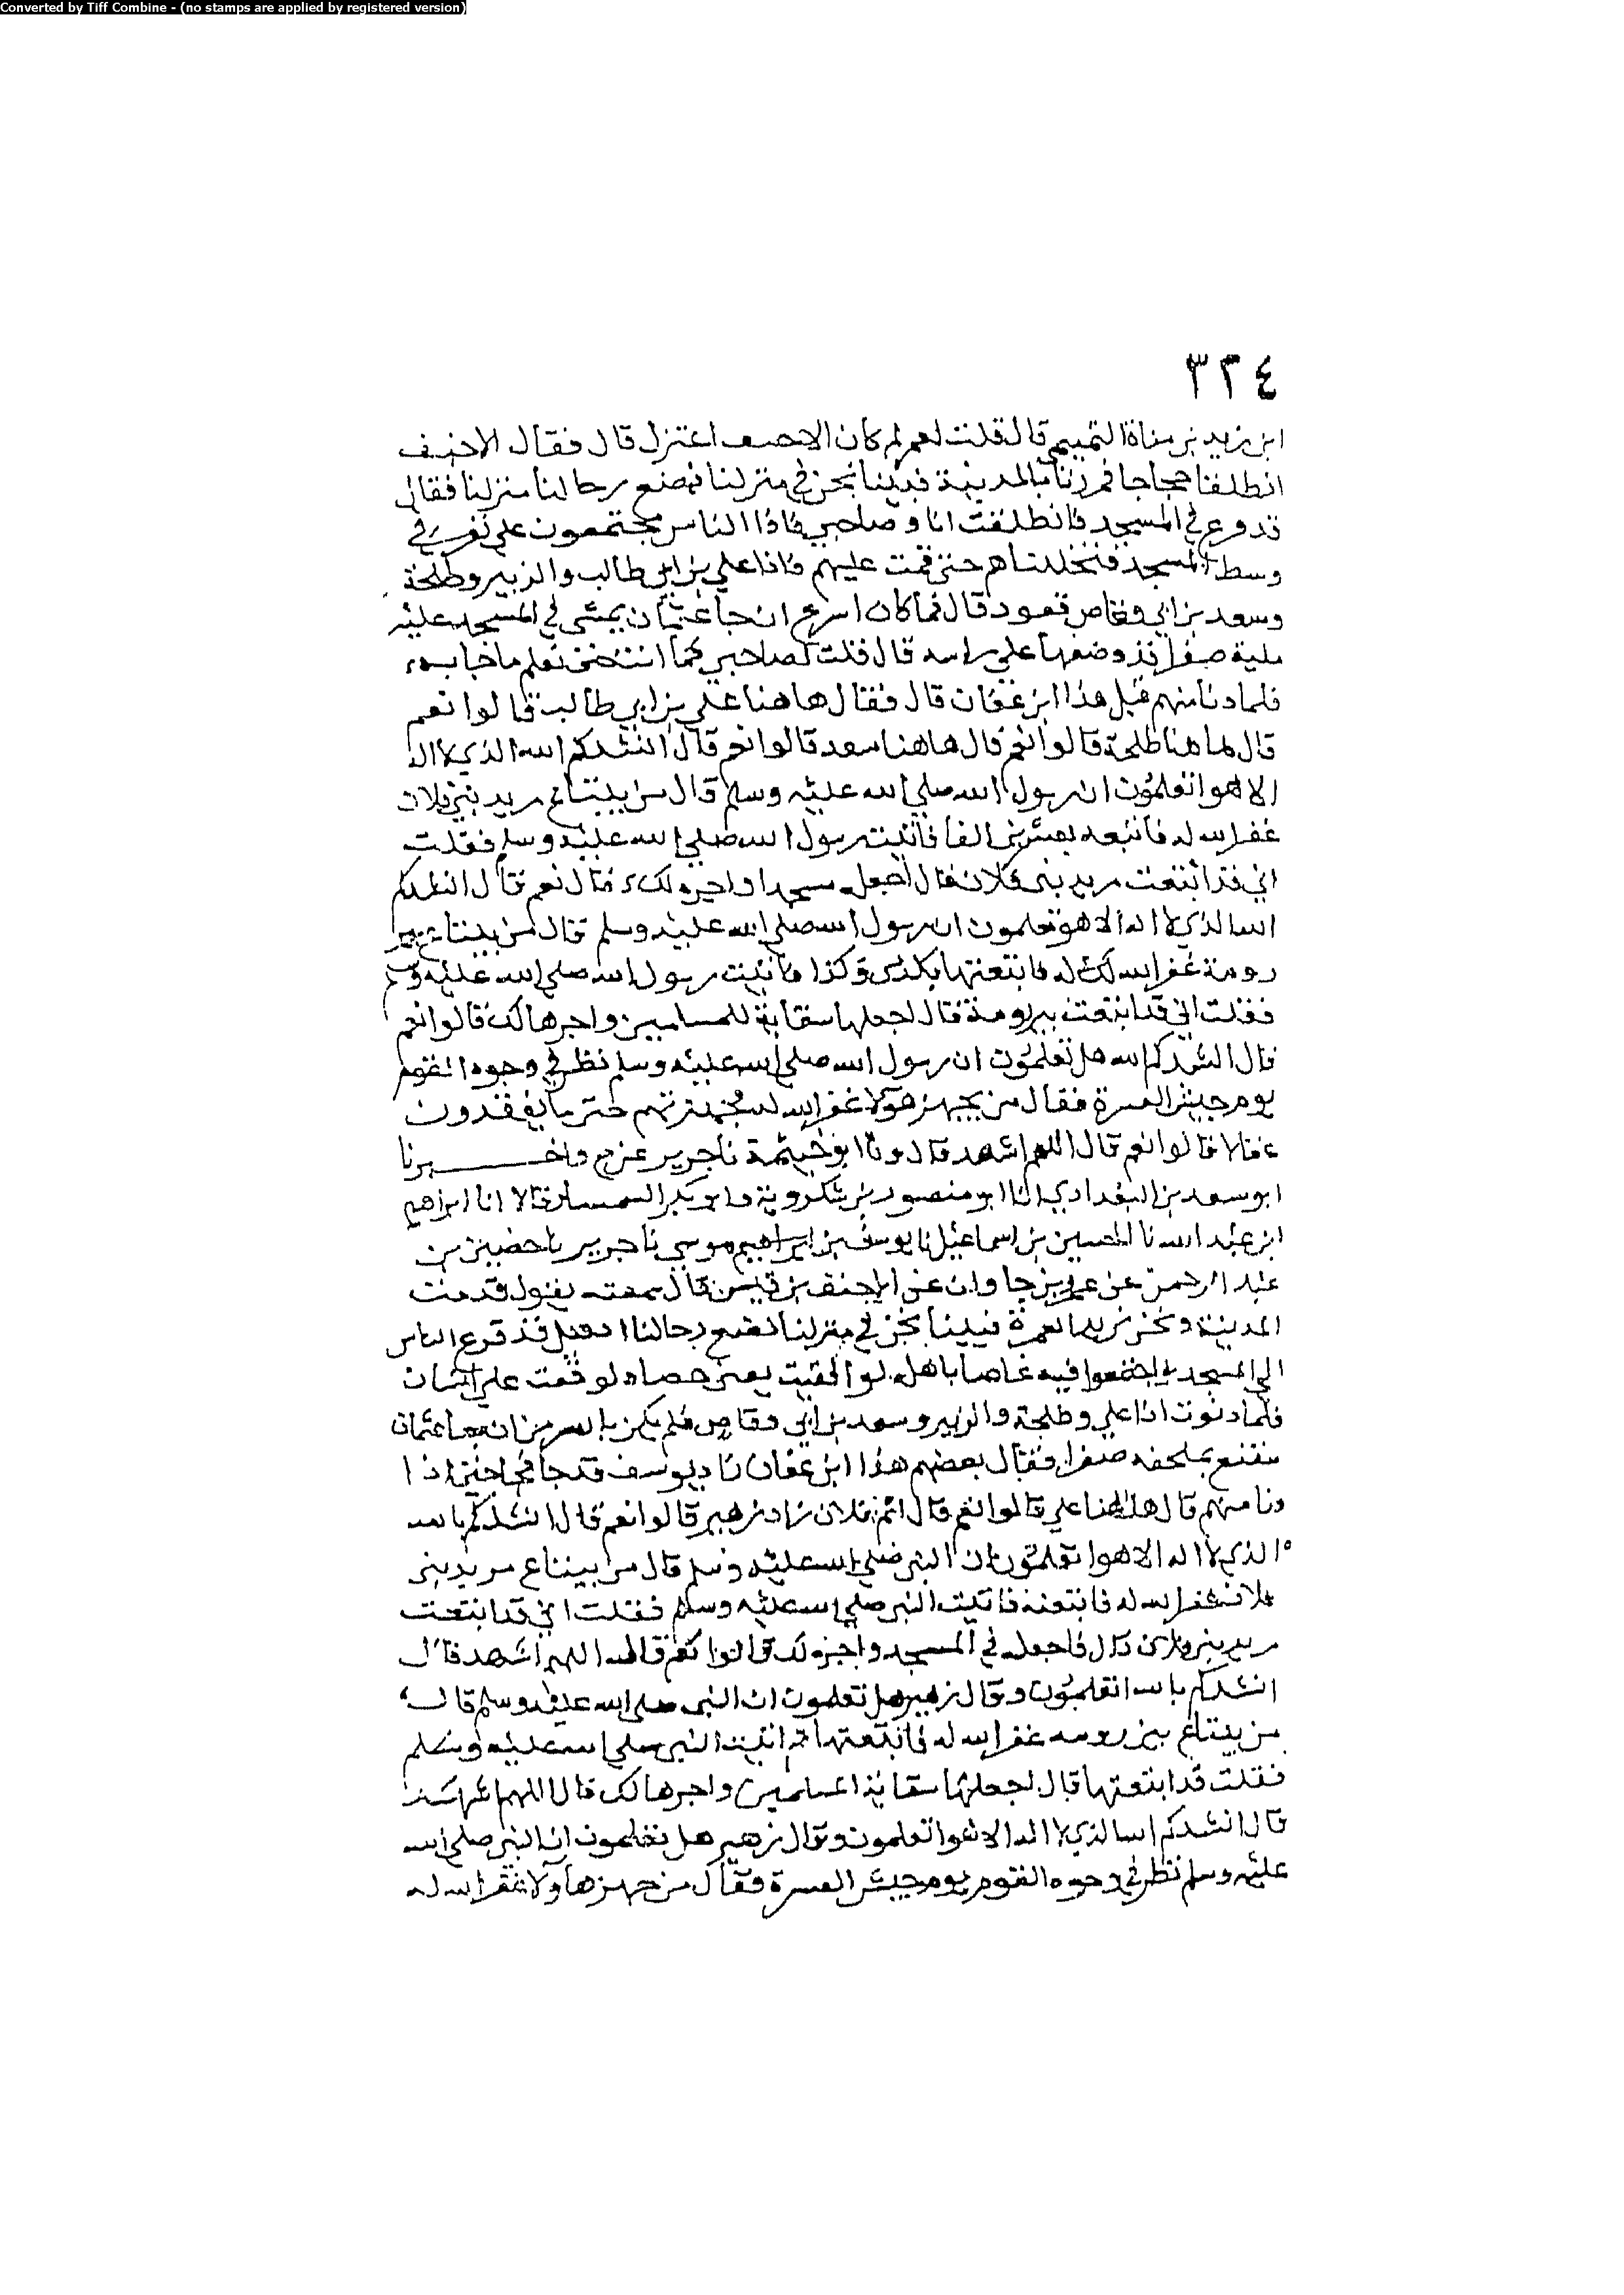 Converted by Tiff Combine - (no stamps are applied by registered version)
٣٣٤
ابن زيد بن مناة التميمي قال قلت لعمر لم كان الاحنف اعتزل قال فقال الاحنف
انطلقنا حجاجا فمررنا بالمدينة فبينا نحن في منزلنا نضع رحالنا منزلنا فقال
قد وع في المسجد فانطلقت انا وصاحبي فاذا الناس مجتمعون على نفر في
وسط المسجد فتخللتاهم حتى قمت عليهم فاذا علي بن ابي طالب والزبير وطلحة
وسعد بن ابي وقاص قعود قال فما كان اسرع ان جا عثمان يمشي في المسجد عليه
ملية صفرا قد وضعها على راسه قال فقلت لصاحبي كما انت حتى نعلم ما جا به
فلما دنا منهم قيل هذا ابن عفان قال فقال هاهنا علي بن ابي طالب قالوا نعم
قال هاهنا طلحة قالوا نعم قال هاهنا سعد قالوا نعم قال انشدكم الله الذي لا اله
الا هو اتعلمون ان رسول الله صلى الله عليه وسلم قال من يبتاع مربد بني فلان
غفر الله له فابتعه بعشرين الفا فاتيت رسول الله صلى الله عليه وسلم فقلت
اني قد ابتعت مربد بني فلان فقال اجعله مسجدا واجره لك قال نعم قال انشدكم
الله الذي لا اله الا هو تعلمون ان رسول الله صلى الله عليه وسلم قال من يبتاع بير
رومة غفر الله له فابتعتها بكذى وكذا فاتيت رسول الله صلى الله عليه وسلم
فقلت اني قد ابتعت بير رومة فقال اجعلها سقاية للمسلمين واجرها لك قالوا نعم
قال انشدكم الله هل تعلمون ان رسول الله صلى الله عليه وسلم نظر في وجوه القوم
يوم جيش العسرة فقال من يجهز هولا غفر الله له فجهزتهم حتى ما يفقدون
عقالا قالوا نعم قال اللهم اشهد قال ونا ابو خيثمة نا جرير واخبرنا
ابو سعد بن البغدادي انا ابو منصور بن شكروية وابو بكر السمسار قالا انا ابراهيم
ابن عبد الله نا الحسين بن اسماعيل نا يوسف بن موسى نا جرير نا حصين بن
عبد الرحمن عن عمر بن جاوان عن الاحنف بن قيس قال سمعته يقول قدمت
المدينة ونحن نريد العمرة فبينا نحن في منزلنا نضع رحالنا اذ قيل قد فزع الناس
الى المسجد واجتمعوا فيه غاصا باهله لو القيت يعني حصاه لوقعت على انسان
فلما دنوت اذا علي وطلحة والزبير وسعد بن ابي وقاص فلم يكن باسرع من ان جا عثمان
متقنع بملحفه صفرا فقال بعضهم هذا ابن عفان زاد يوسف قد جا فجا حتى اذا
دنا منهم قال هاهنا علي قالوا نعم قال اثم فلان زاد زهير قالوا نعم قال انشدكم بالله
الذي لا اله الا هو اتعلمون ان النبي صلى الله عليه وسلم قال من يبتاع مربد بني
فلان غفر الله له فابتعته فاتيت النبي صلى الله عليه وسلم فقلت اني قد ابتعت
مربد بني فلان قال فاجعله في المسجد واجره لك قالوا نعم قال اللهم اشهد قال
انشدكم بالله اتعلمون وقال زهير هل تعلمون ان النبي صلى الله عليه وسلم قال
من يبتاع بير رومه غفر الله له فابتعتها ثم اتيت النبي صلى الله عليه وسلم
فقلت قد ابتعتها قال اجعلها سقاية المسلمين واجرها لك قال اللهم اشهد
قال انشدكم الله الذي لا اله الا هو اتعلمون وقال زهير هل تعلمون ان النبي صلى الله
عليه وسلم نظر في وجوه القوم يوم جيش العسرة فقال من جهز هاولا غفر الله له